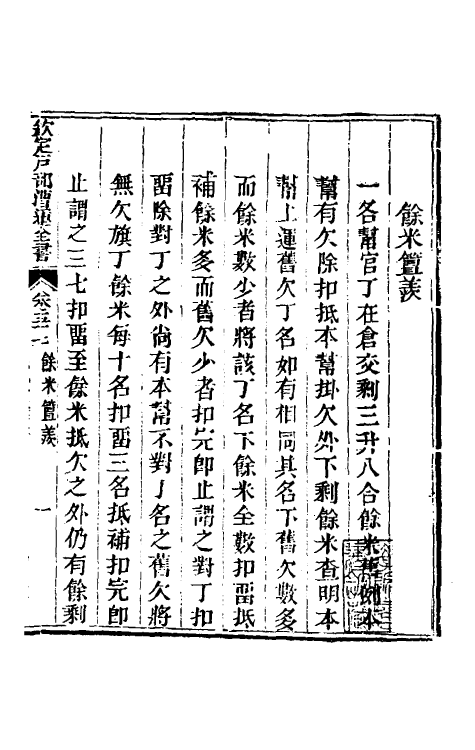 餘米簠羨
一各幫官丁在倉交剩三升八合餘米舊例本
幫有欠除扣抵本幫掛欠外下剩餘米查明本
幫上運舊欠丁名如有相同其名下舊欠數多
而餘米數少者將該丁名下餘米全數扣畱抵
補餘米多而舊欠少者扣完卽止謂之對丁扣
畱除對丁之外尚有本幫不對丁名之舊欠將
無欠旗丁餘米每十名扣畱三名抵補扣完卽
止謂之三七扣畱至餘米抵欠之外仍有餘剩
欽定戶部漕運全書
卷五十二 餘米簠羨 一